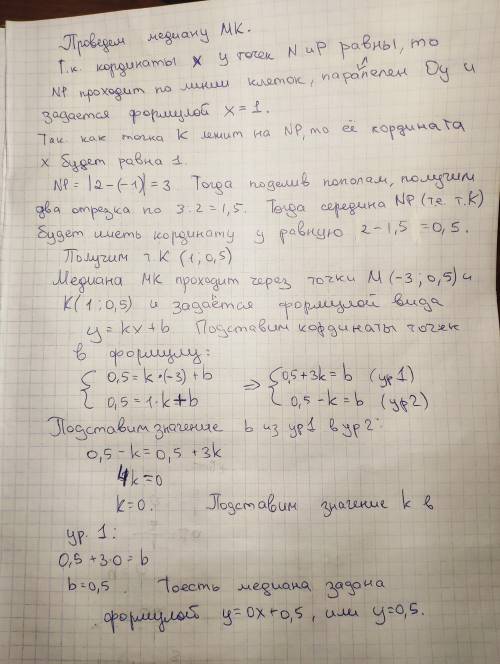 Проведем медиану МК.
Т.к. кординаты х у точек N и P равны, то
NP проходит по линии клеток, паралелен Oy и
задается формулой x = 1.
Так как точка K лежит на NP, то её кордината
x будет равна 1.
NP = |2-(-1)| = 3. Тогда поделив пополам, получим
два отрезка по 3:2 = 1,5. Тогда середина NP (т.е. т.K)
будет иметь кординату y равную 2-1,5 = 0,5.
Получим т.K (1; 0,5)
Медиана МК проходит через точки M (-3; 0,5) и
K(1; 0,5) и задаётся формулой вида
y = kx + b. Подставим кординаты точек
в формулу:
{ 0,5 = k·(-3) + b ⇒ { 0,5 + 3k = b (ур 1)
{ 0,5 = 1·k + b { 0,5 - k = b (ур 2)
Подставим значение b из ур 1 в ур 2:
0,5 - k = 0,5 + 3k
4k = 0
k = 0. Подставим значение k в
ур. 1:
0,5 + 3·0 = b
b = 0,5. Тоесть медиана задана
формулой y = 0x + 0,5, или y = 0,5.